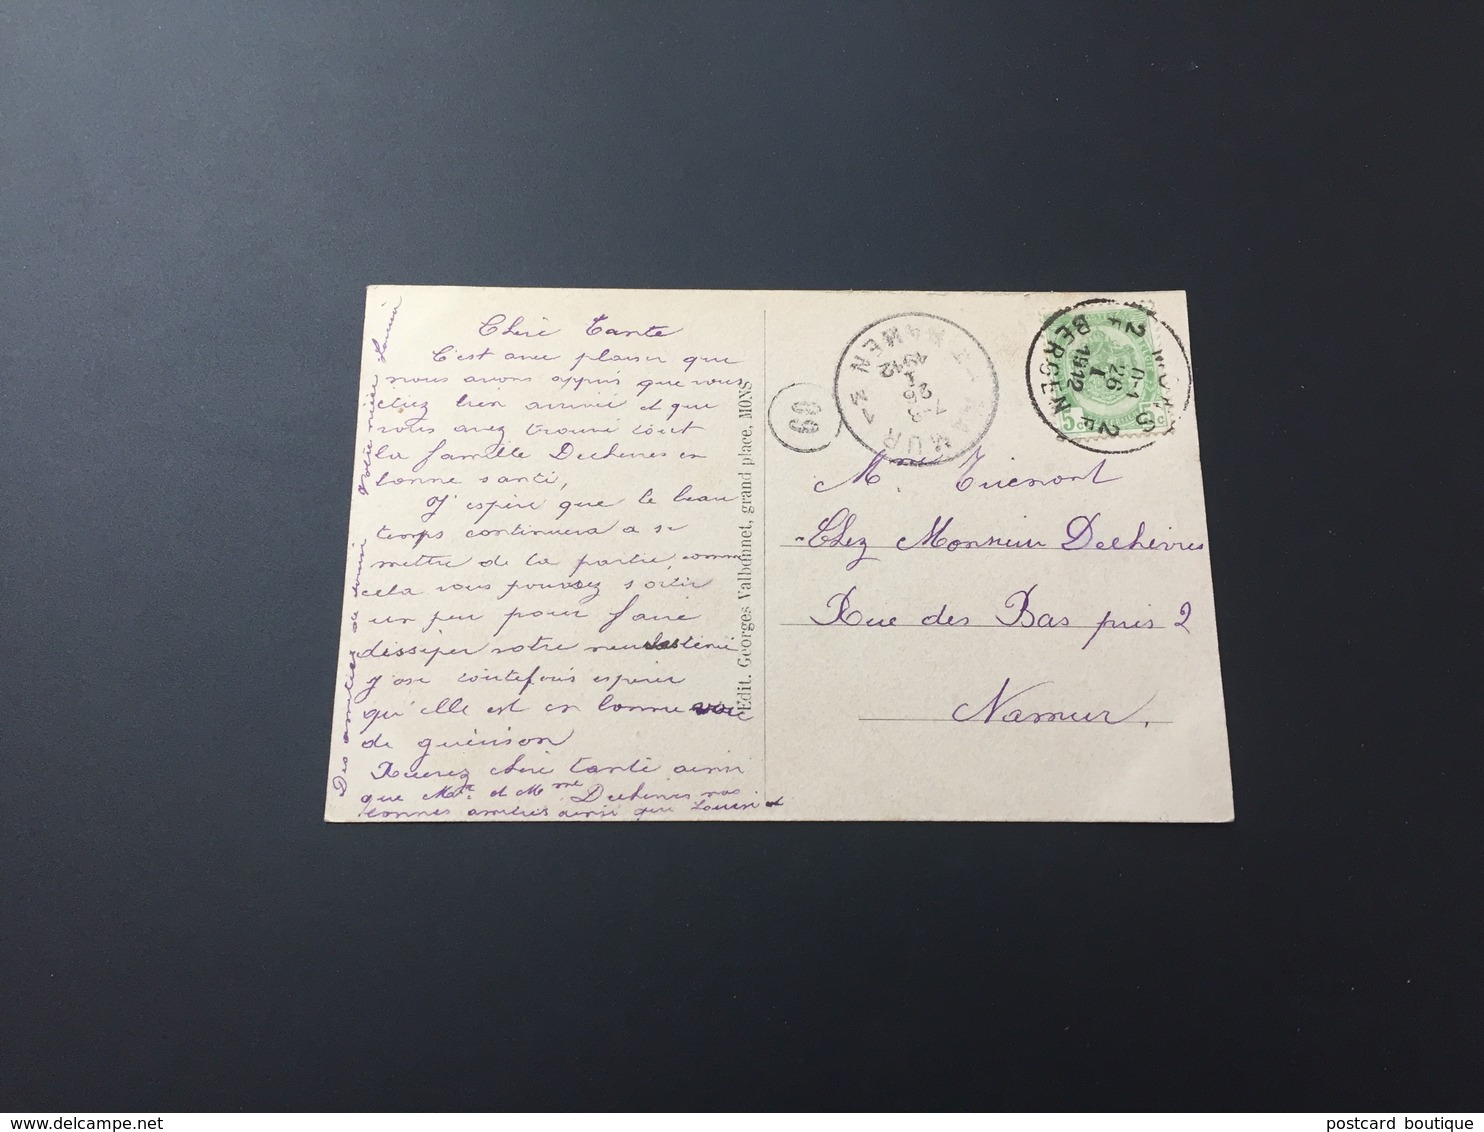 Chère Tante
C'est avec plaisir que
nous avons appris que vous
étiez bien arrivé et que
vous avez trouvé tout
la famille Dechèvres en
bonne santé,
J'espère que le beau
temps continuera a se
mettre de la partie, comme
cela vous pouvez sortir
un peu pour faire
dissiper votre
J'ose toutefois espérer
qu'elle est en bonne voie
de guérison
Recevez chère tante ainsi
que Mr et Mme Dechèvres nos
bonnes amitiés ainsi que Louisi
Des amitiés de
Votre nièce
Edit. Georges Valbonnet, grand place, MONS
69
NAMUR 3
7-8
26
I
1912
NAMEN 3
MONS 2F
11-1
26
I
1912
BERGEN 2F
5 C
Mme
Chez Monsieur Dechèvres
Rue des Bas prés 2
Namur.
www.delcampe.net
postcard boutique